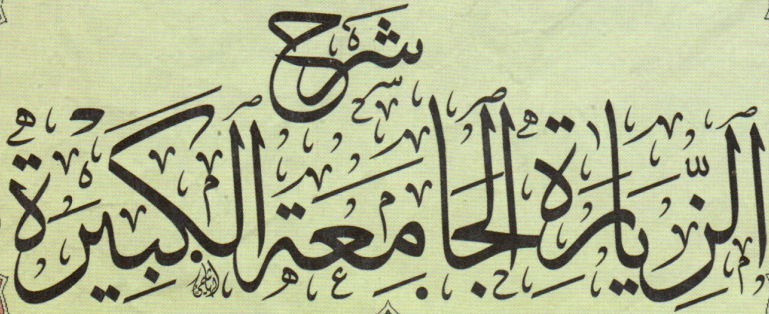 شرح
الزِّيَارَة الجَامِعَة الكَبِيرَة